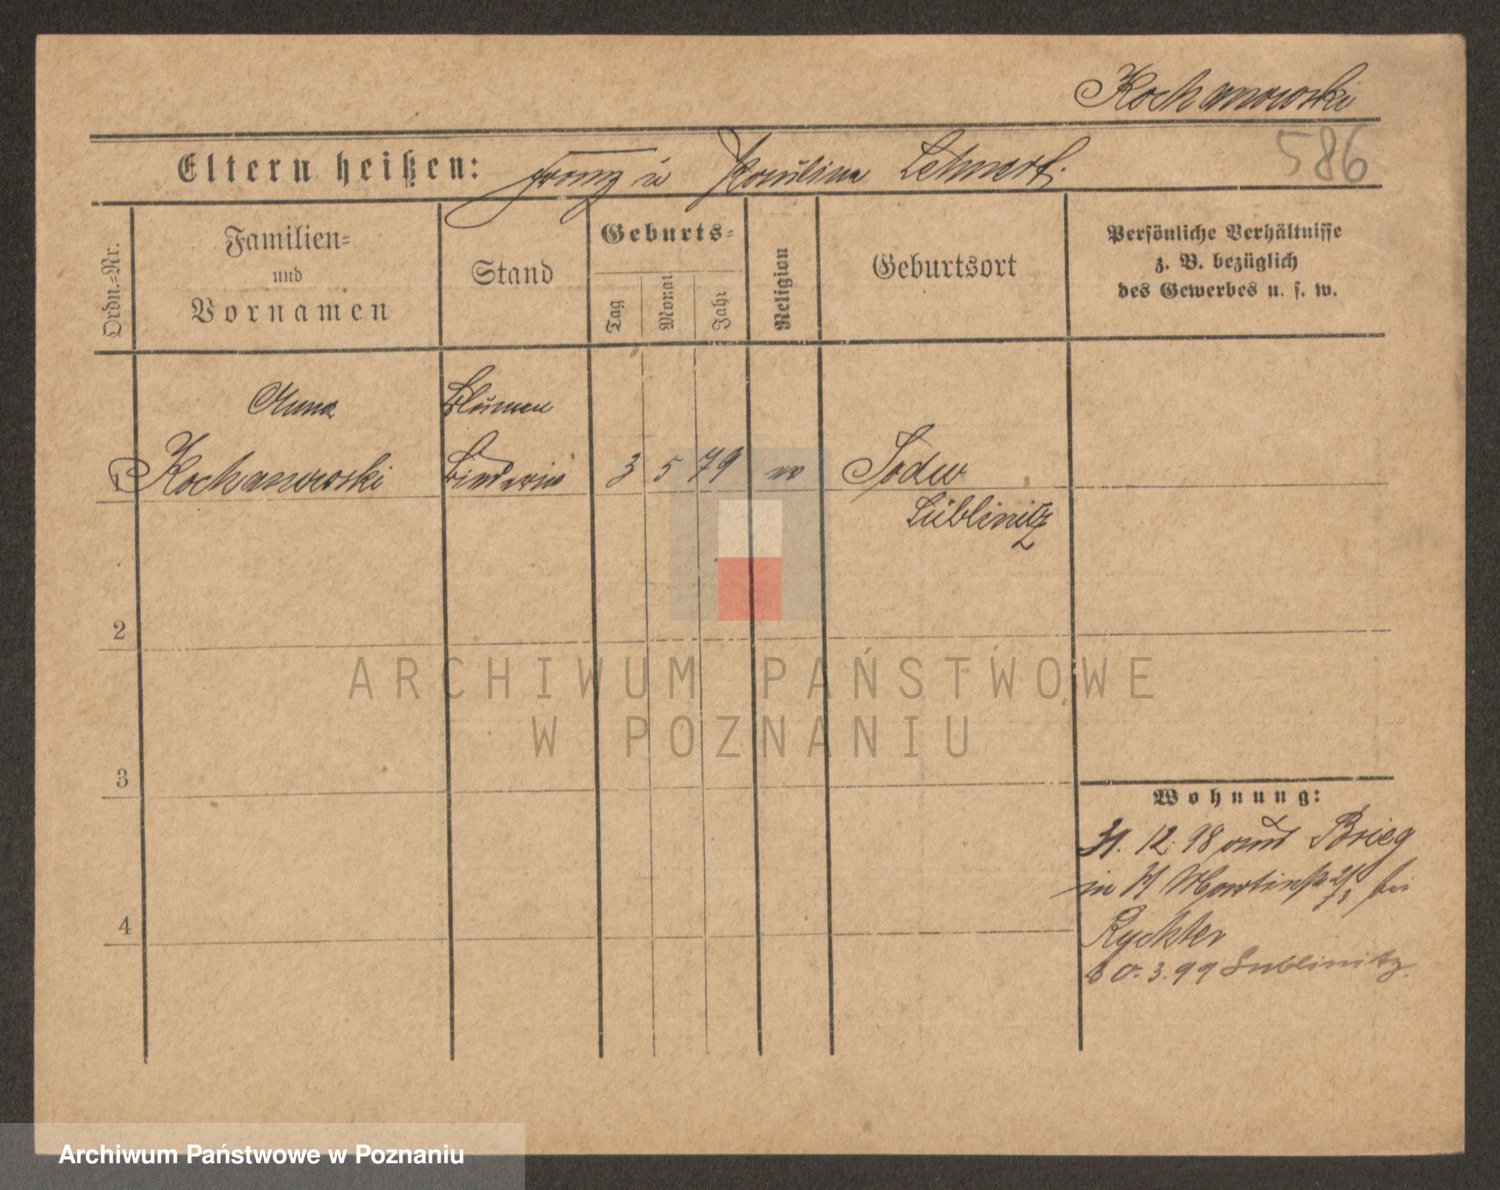 Kochanowski
586
Eltern heißen: Franz u Paulina Lehnert.
Ordn.=Nr.
Familien=
und
Vornamen
Stand
Geburts=
Tag
Monat
Jahr
Religion
Geburtsort
Persönliche Verhältnisse
z. B. bezüglich
des Gewerbes u. s. w.
Anna Blumen
1 Kochanowski Binderin 3 5 79
Lublinitz
2
3
4
Wohnung:
31. 12. 98 aus Brieg
in Martinstr bei
Rychter
3. 99 Lublinitz.
ARCHIWUM PAŃSTWOWE
W POZNANIU
Archiwum Państwowe w Poznaniu